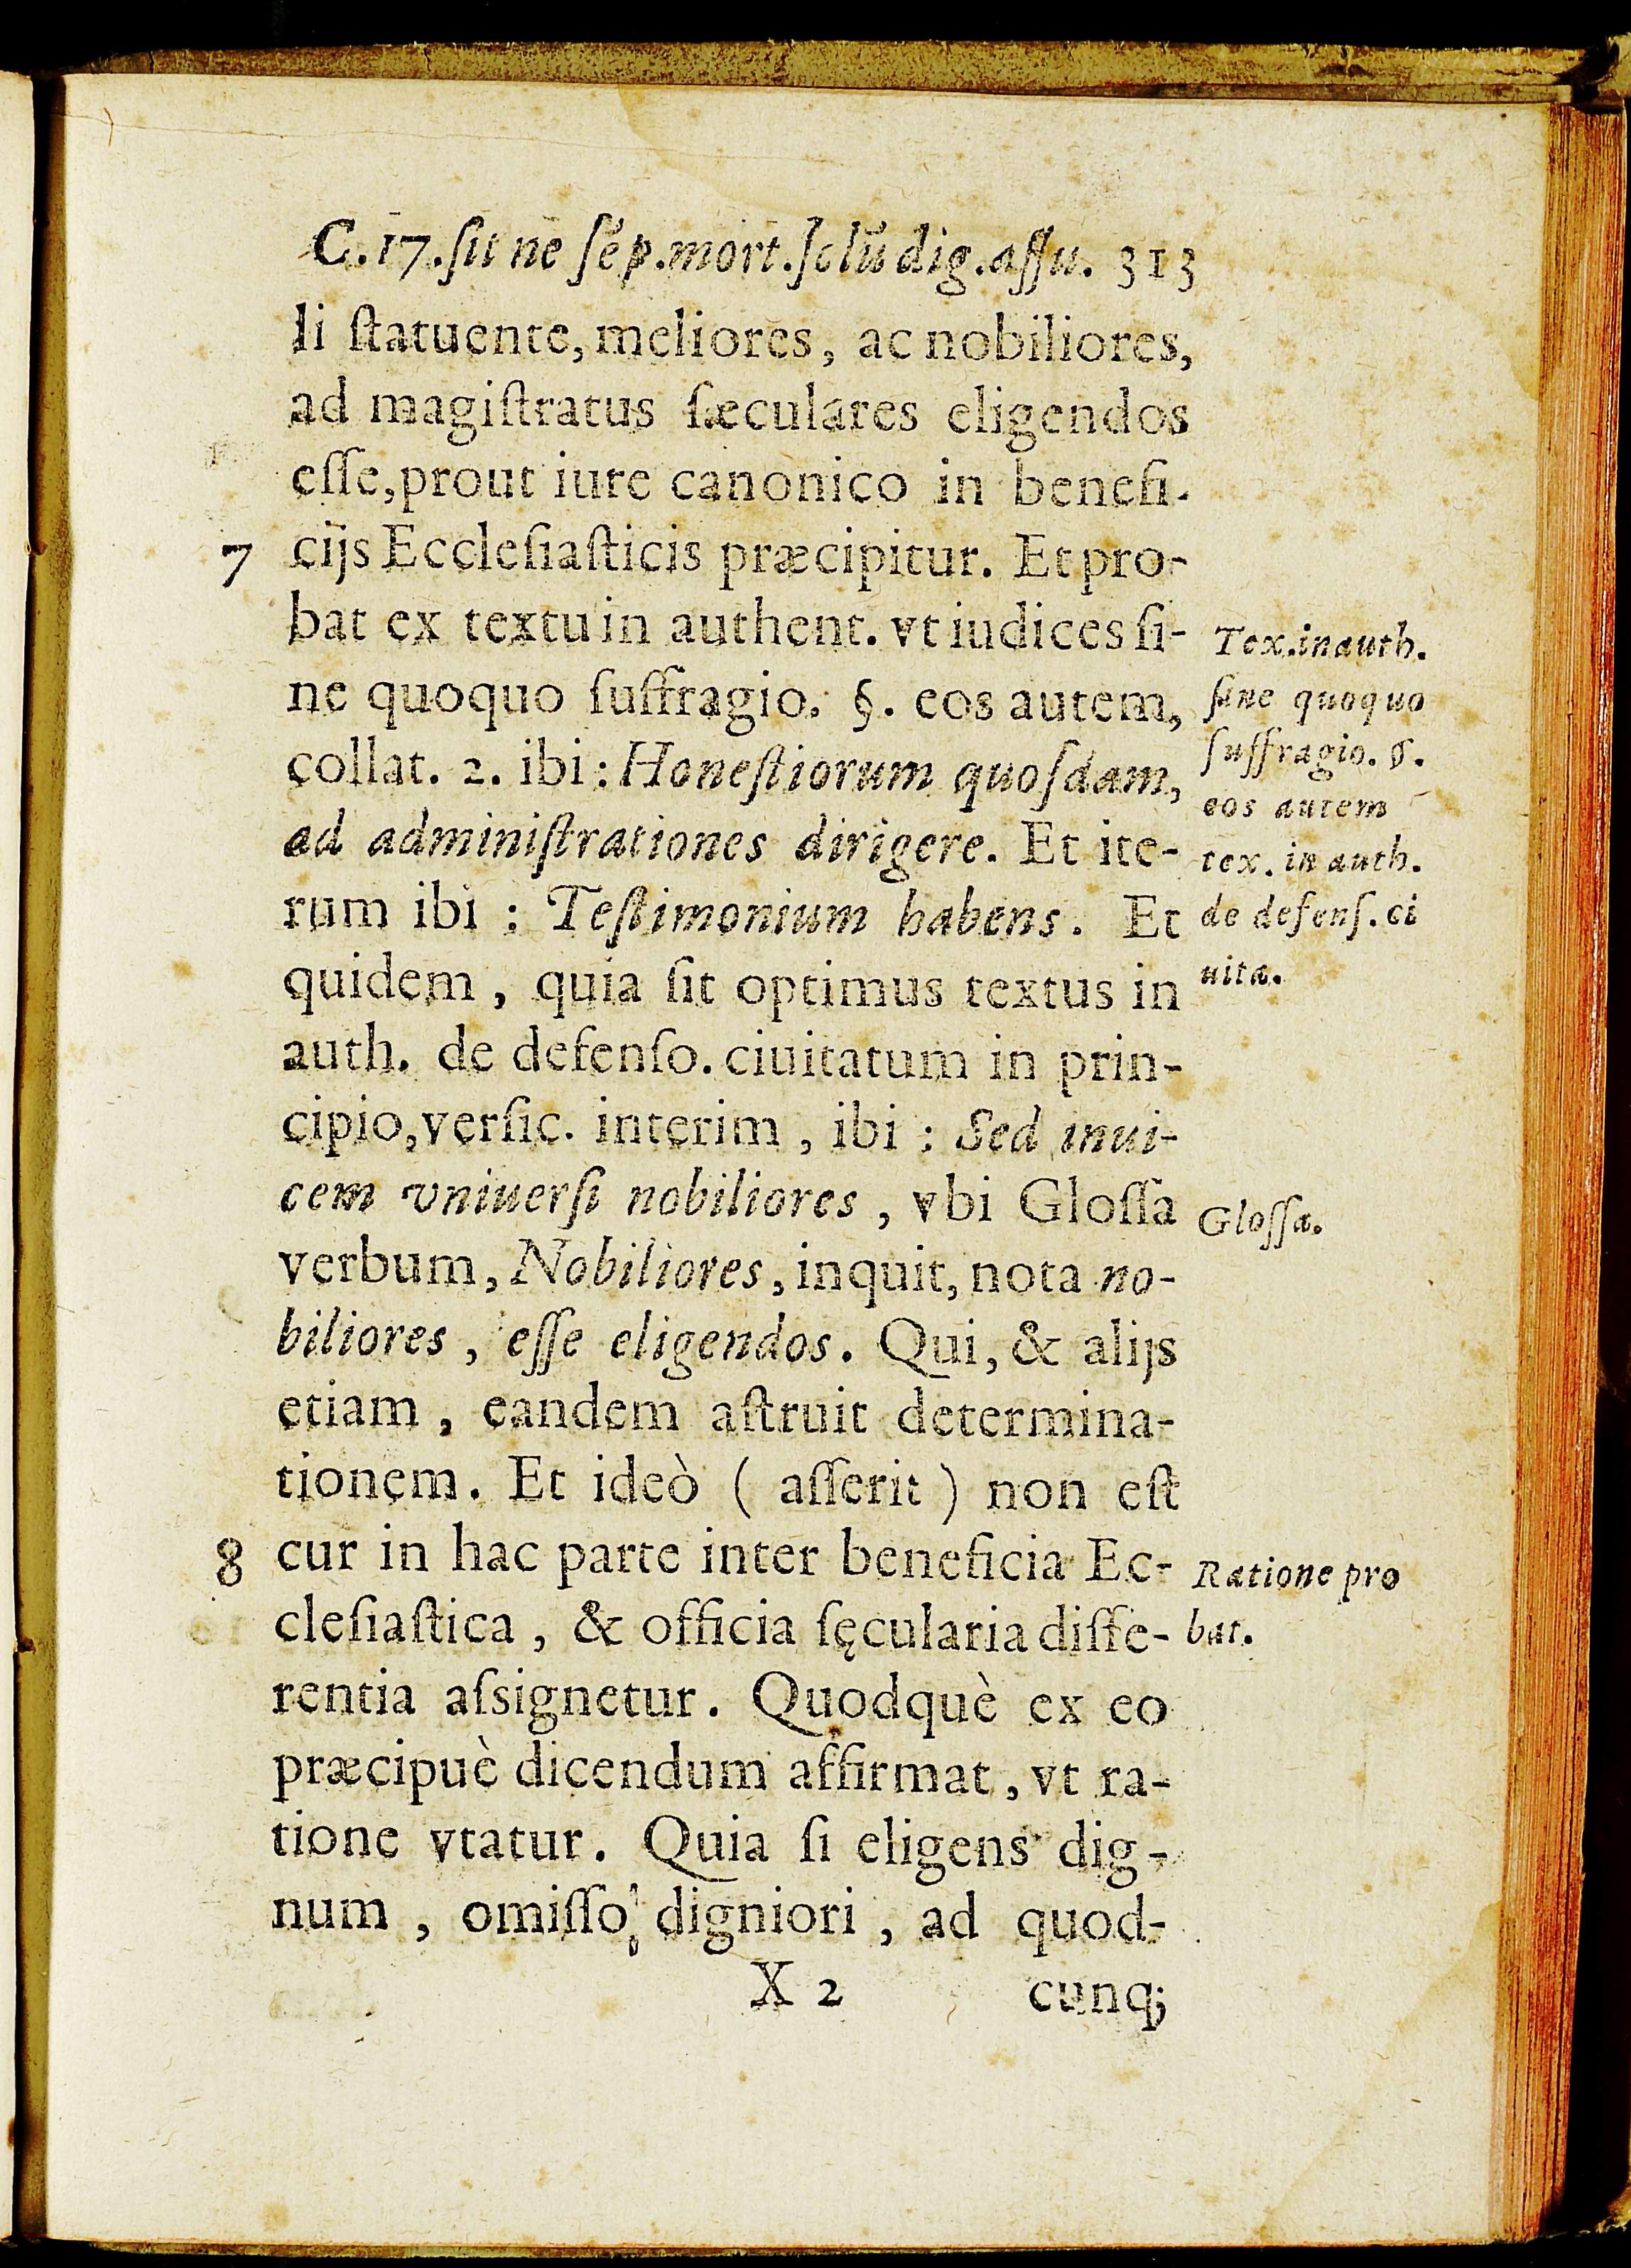 C.17.ſit ne ſēp.mort.ſolū dig.aſſu. 313
li ſtatuente, meliores, ac nobiliores,
ad magiſtratus ſæculares eligendos
eſſe, prout iure canonico in benefi-
7 cijs Eccleſiaſticis præcipitur. Et pro-
bat ex textu in authent. vt iudices ſi-
ne quoquo ſuffragio. §. eos autem,
collat. 2. ibi: Honeſtiorum quoſdam,
ad adminiſtrationes dirigere. Et ite-
rum ibi : Teſtimonium habens. Et
quidem, quia ſit optimus textus in
auth. de defenſo. ciuitatum in prin-
cipio, verſic. interim, ibi : Sed inui-
cem vniuerſi nobiliores, vbi Gloſſa
verbum, Nobiliores, inquit, nota no-
biliores, eſſe eligendos. Qui, & alijs
etiam, eandem aſtruit determina-
tionem. Et ideò ( aſſerit ) non eſt
8 cur in hac parte inter beneficia Ec-
cleſiaſtica, & officia ſęcularia diffe-
rentia aſsignetur. Quodquè ex eo
præcipuè dicendum affirmat, vt ra-
tione vtatur. Quia ſi eligens dig-
num, omiſſo, digniori, ad quod-
X 2 cunq;
Tex.in auth.
ſine quoquo
ſuffragio. §.
eos autem
tex. in auth.
de defenſ. ci
uita.
Gloſſa.
Ratione pro
bat.